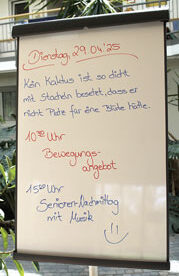 Dienstag, 29.04.'25
Kein Kaktus ist so dicht
mit Stacheln besetzt, dass er
nicht Platz für eine Blüte hätte.
10:30 Uhr
Bewegungs-
angebot
15:00 Uhr
Senioren-Nachmittag
mit Musik